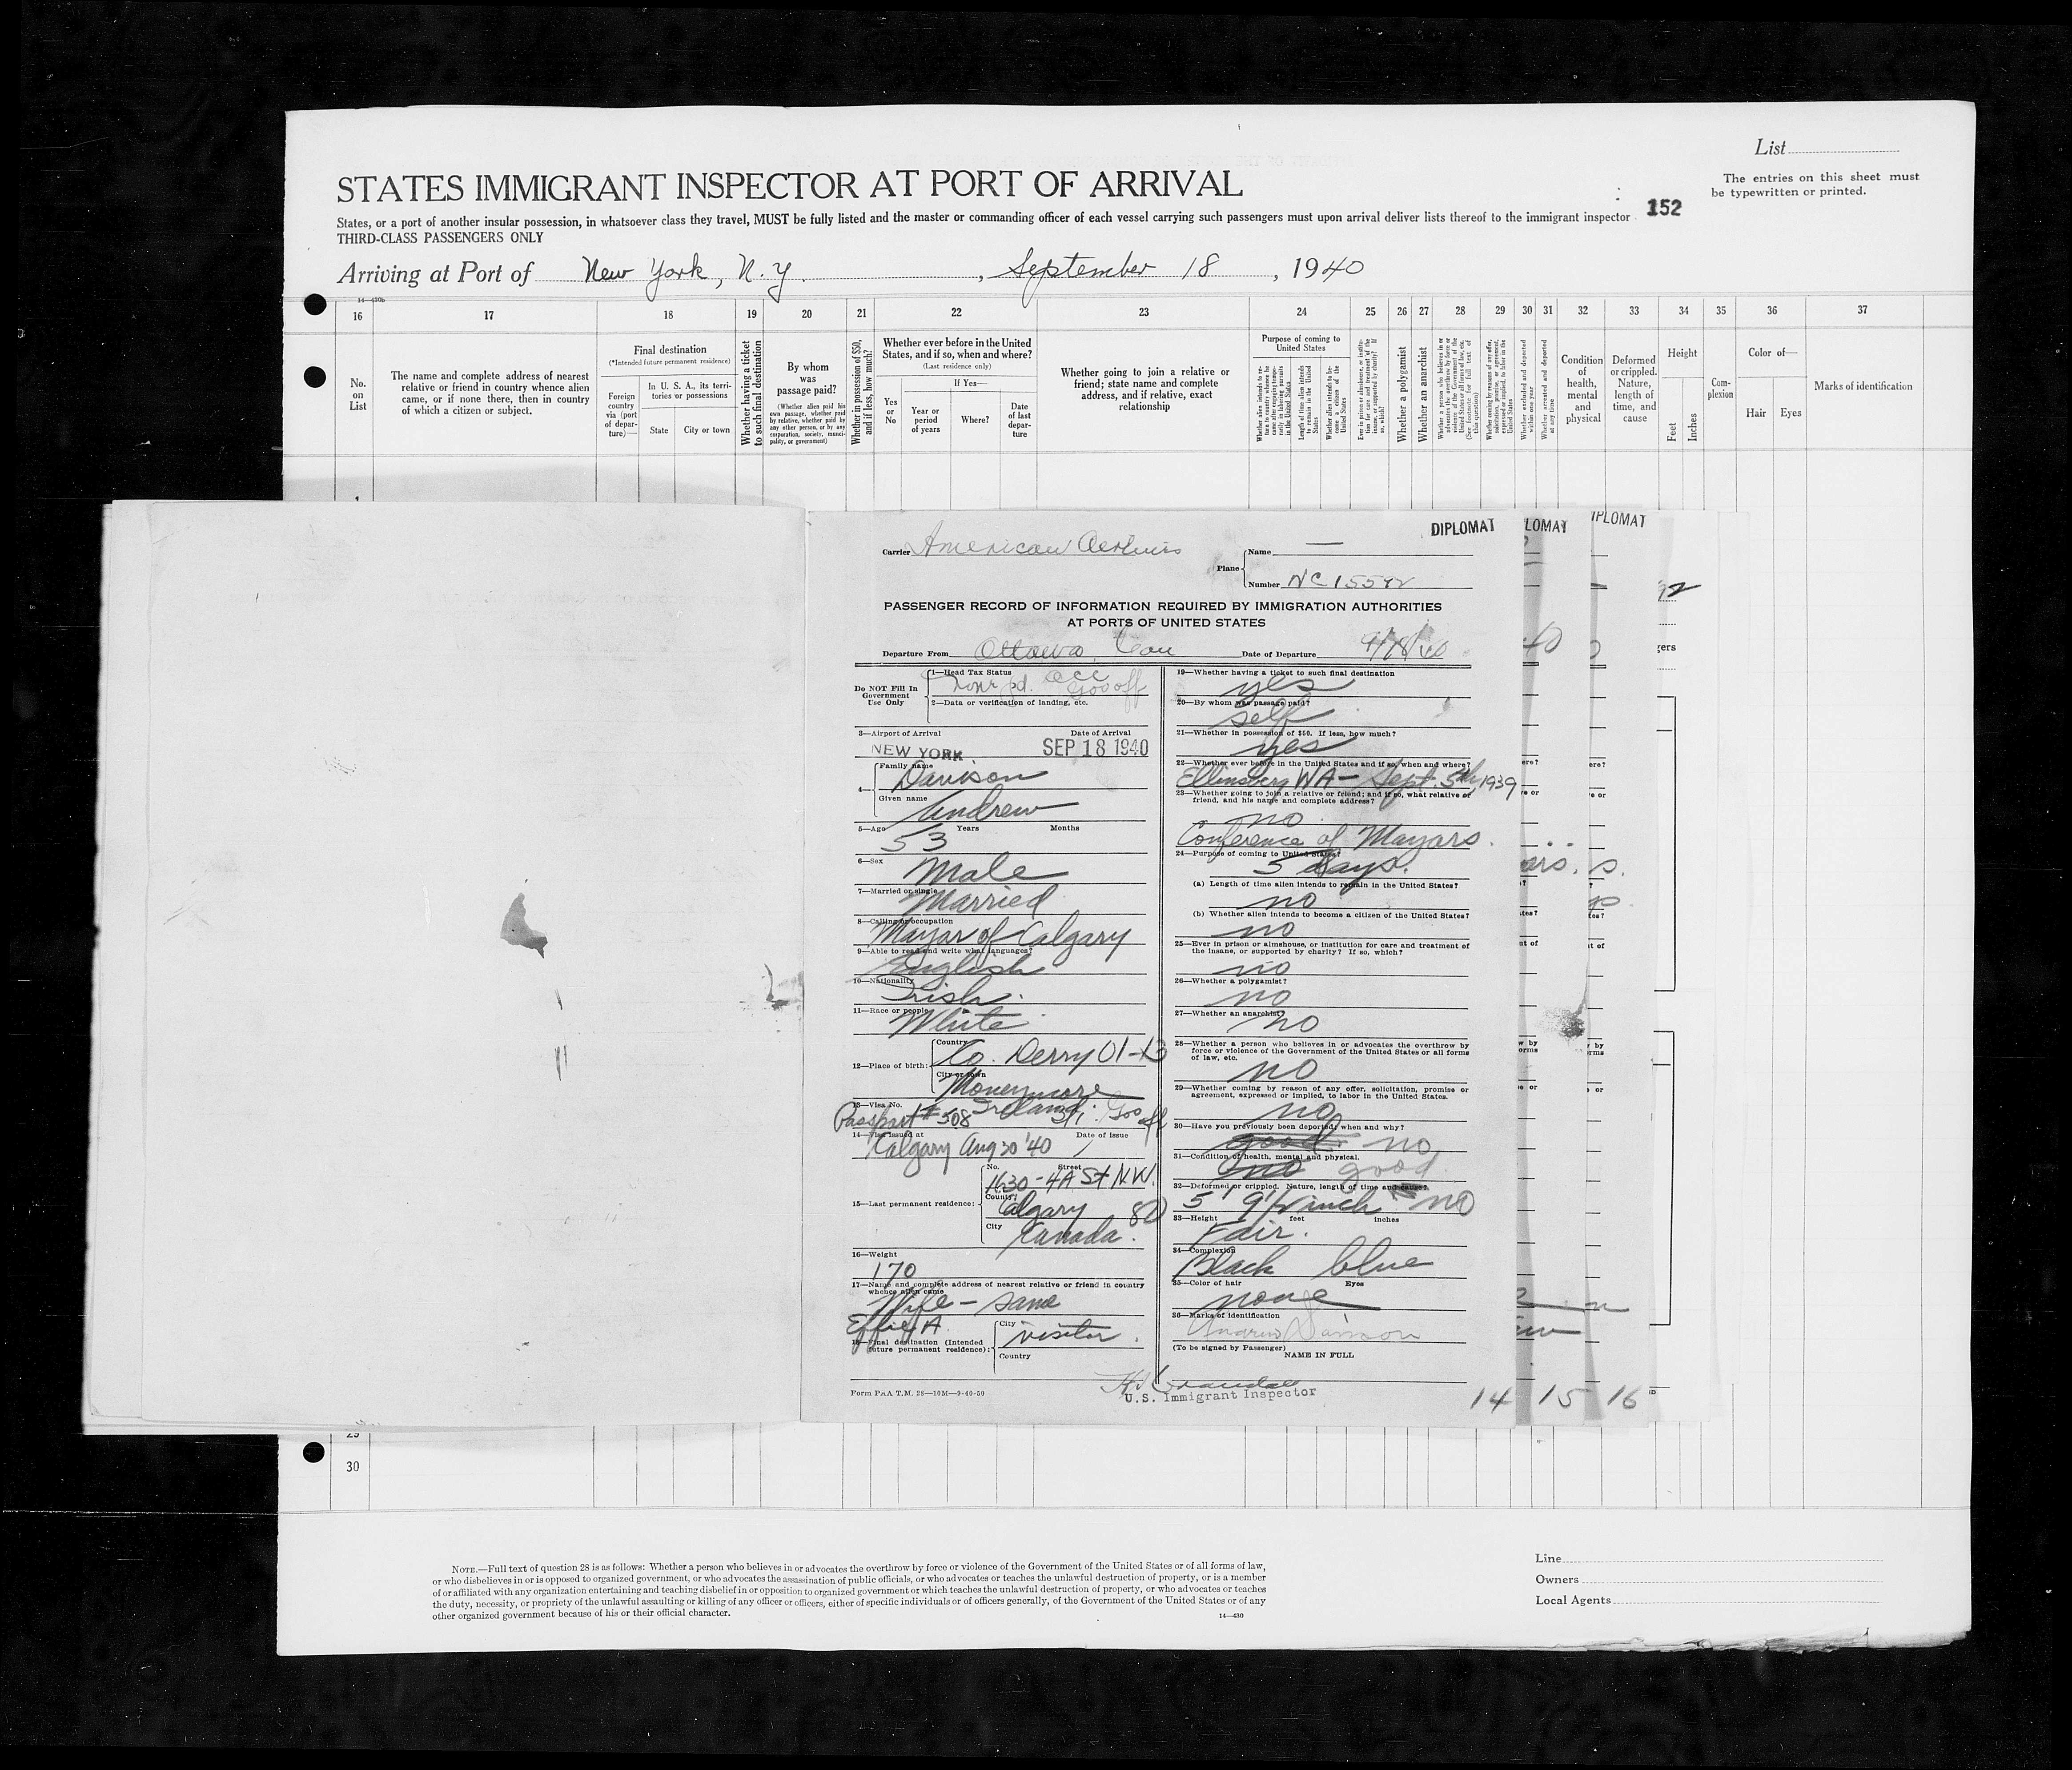 List
The entries on this sheet must
be typewritten or printed.
STATES IMMIGRANT INSPECTOR AT PORT OF ARRIVAL
152
States, or a port of another insular possession, in whatsoever class they travel, MUST be fully listed and the master or commanding officer of each vessel carrying such passengers must upon arrival deliver lists thereof to the immigrant inspector
THIRD-CLASS PASSENGERS ONLY
Arriving at Port of New York, N.Y., September 18, 1940
16 17 18 19 20 21 22 23 24 25 26 27 28 29 30 31 32 33 34 35 36 37
No. on List
The name and complete address of nearest relative or friend in country whence alien came, or if none there, then in country of which a citizen or subject.
Final destination
(*Intended future permanent residence)
Foreign country via (port of departure)—
In U. S. A., its territories or possessions
State
City or town
Whether having a ticket to such final destination
By whom was passage paid?
(Whether alien paid his own passage, whether paid by relative, whether paid by any other person, or by any corporation, society, municipality, or government)
Whether in possession of $50, and if less, how much?
Whether ever before in the United States, and if so, when and where?
(Last residence only)
Yes or No
If Yes—
Year or period of years
Where?
Date of last departure
Whether going to join a relative or friend; state name and complete address, and if relative, exact relationship
Purpose of coming to United States
Whether a polygamist
Whether an anarchist
Condition of health, mental and physical
Deformed or crippled. Nature, length of time, and cause
Height
Feet
Inches
Complexion
Color of—
Hair
Eyes
Marks of identification
DIPLOMAT
LOMAT
IPLOMAT
Carrier American Airlines
Plane
Name —
Number NC 15592
PASSENGER RECORD OF INFORMATION REQUIRED BY IMMIGRATION AUTHORITIES
AT PORTS OF UNITED STATES
Departure From Ottawa Can
Date of Departure 9/18/40
Do NOT Fill In Government Use Only
1—Head Tax Status
2—Data or verification of landing, etc.
3—Airport of Arrival
Date of Arrival
NEW YORK SEP 18 1940
4— Family name
Davison
Given name
Andrew
5—Age Years Months
53
6—Sex
Male
7—Married or single
Married
8—Calling or occupation
Mayor of Calgary
9—Able to read and write what languages?
English
10—Nationality
Irish.
11—Race or people
White
12—Place of birth:
Country
Co. Derry 01-13
City or town
Moneymore
Ireland
13—Visa No.
Passport # 508
14—Visa issued at
Date of issue
Calgary Aug 30 '40
15—Last permanent residence:
No. Street
1630-4A St N.W.
County
Calgary 80
City
Canada.
16—Weight
170
17—Name and complete address of nearest relative or friend in country whence alien came
Wife — same
Effie A
18—Final destination (Intended future permanent residence):
City
visitor.
Country
Form PAA T.M. 26—10M—9-40-50
19—Whether having a ticket to such final destination
yes
20—By whom was passage paid?
self
21—Whether in possession of $50. If less, how much?
yes
22—Whether ever before in the United States and if so, when and where?
Ellensberg WA — Sept. 5th, 1939
23—Whether going to join a relative or friend; and if so, what relative or
friend, and his name and complete address?
no
Conference of Mayors.
24—Purpose of coming to United States?
5 days.
(a) Length of time alien intends to remain in the United States?
no
(b) Whether alien intends to become a citizen of the United States?
no
25—Ever in prison or almshouse, or institution for care and treatment of
the insane, or supported by charity? If so, which?
no
26—Whether a polygamist?
no
27—Whether an anarchist?
no
28—Whether a person who believes in or advocates the overthrow by
force or violence of the Government of the United States or all forms
of law, etc.
no
29—Whether coming by reason of any offer, solicitation, promise or
agreement, expressed or implied, to labor in the United States.
no
30—Have you previously been deported; when and why?
good no
31—Condition of health, mental and physical.
no good
32—Deformed or crippled. Nature, length of time and cause?
5' 9 1/2 inch. no
33—Height feet inches
Fair.
34—Complexion
Black blue
35—Color of hair Eyes
none
36—Marks of identification
Andrew Davison
(To be signed by Passenger)
NAME IN FULL
U.S. Immigrant Inspector
14 15 16
30
NOTE.—Full text of question 28 is as follows: Whether a person who believes in or advocates the overthrow by force or violence of the Government of the United States or of all forms of law,
or who disbelieves in or is opposed to organized government, or who advocates the assassination of public officials, or who advocates or teaches the unlawful destruction of property, or is a member
of or affiliated with any organization entertaining and teaching disbelief in or opposition to organized government or which teaches the unlawful destruction of property, or who advocates or teaches
the duty, necessity, or propriety of the unlawful assaulting or killing of any officer or officers, either of specific individuals or of officers generally, of the Government of the United States or of any
other organized government because of his or their official character.
14—430
Line
Owners
Local Agents